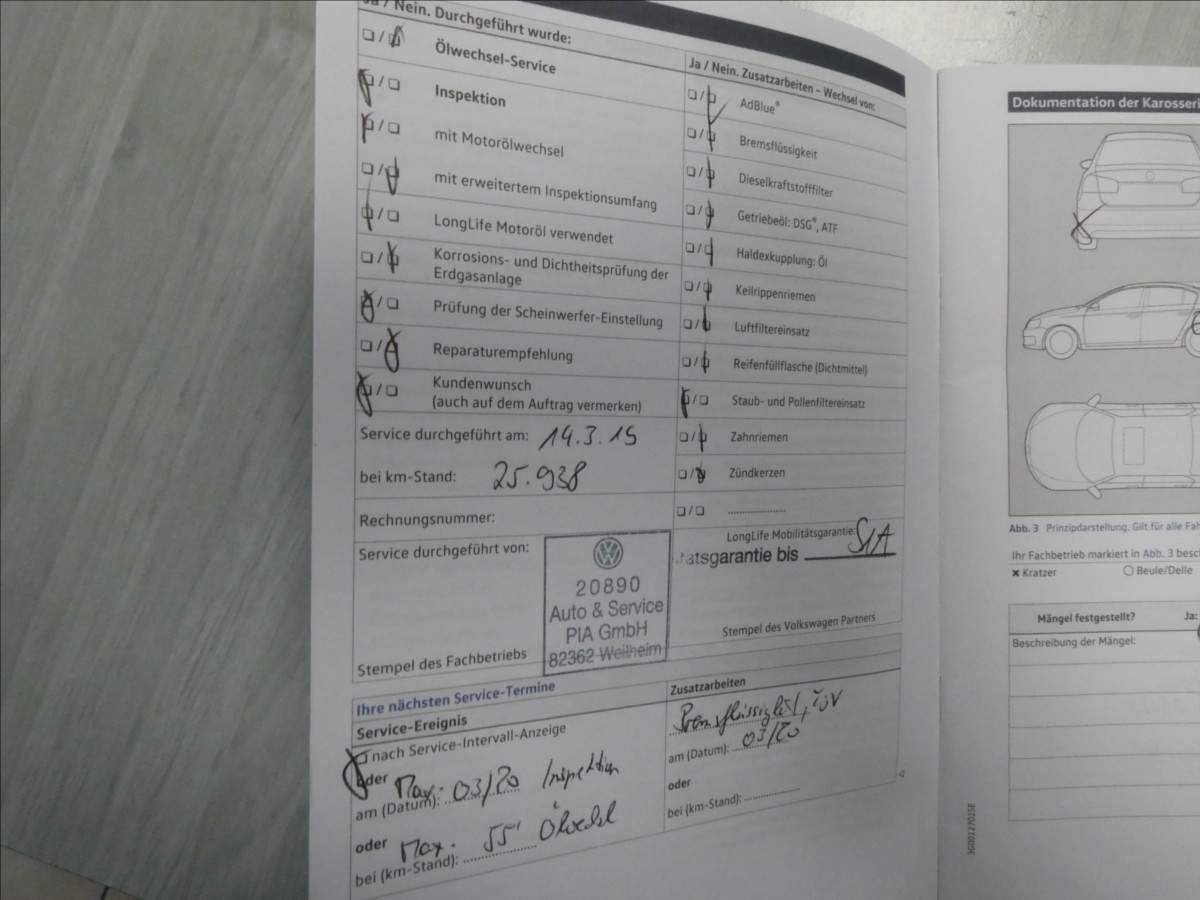 Ja / Nein. Durchgeführt wurde:
Ölwechsel-Service
Inspektion
mit Motorölwechsel
mit erweitertem Inspektionsumfang
LongLife Motoröl verwendet
Korrosions- und Dichtheitsprüfung der
Erdgasanlage
Prüfung der Scheinwerfer-Einstellung
Reparaturempfehlung
Kundenwunsch
(auch auf dem Auftrag vermerken)
Service durchgeführt am: 14.3.19
bei km-Stand: 25.938
Rechnungsnummer:
Service durchgeführt von:
20890
Auto & Service
PIA GmbH
82362 Weilheim
Stempel des Fachbetriebs
Ja / Nein. Zusatzarbeiten – Wechsel von:
AdBlue®
Bremsflüssigkeit
Dieselkraftstofffilter
Getriebeöl: DSG®, ATF
Haldexkupplung: Öl
Keilrippenriemen
Luftfiltereinsatz
Reifenfüllflasche (Dichtmittel)
Staub- und Pollenfiltereinsatz
Zahnriemen
Zündkerzen
LongLife Mobilitätsgarantie:
tätsgarantie bis SIA
Stempel des Volkswagen Partners
Ihre nächsten Service-Termine
Service-Ereignis
nach Service-Intervall-Anzeige
oder
am (Datum): Max. 03/20 Inspektion
oder
bei (km-Stand): Max. 55' Ölwechsl
Zusatzarbeiten
Bremsflüssigkeit, TÜV
am (Datum): 03/20
oder
bei (km-Stand):
Dokumentation der Karosseri
Abb. 3 Prinzipdarstellung. Gilt für alle Fah
Ihr Fachbetrieb markiert in Abb. 3 besch
Kratzer
Beule/Delle
Mängel festgestellt? Ja:
Beschreibung der Mängel:
3G0012701SE